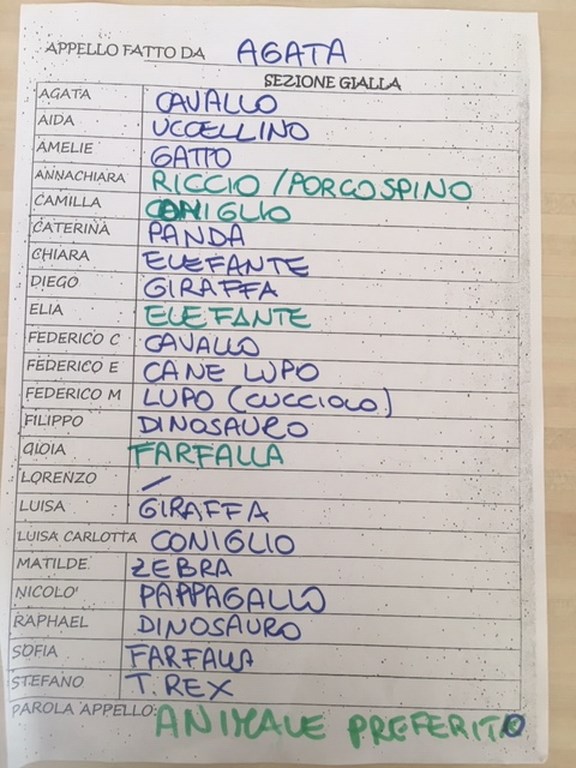 APPELLO FATTO DA AGATA
SEZIONE GIALLA
AGATA CAVALLO
AIDA UCCELLINO
AMELIE GATTO
ANNACHIARA RICCIO/PORCOSPINO
CAMILLA CONIGLIO
CATERINA PANDA
CHIARA ELEFANTE
DIEGO GIRAFFA
ELIA ELEFANTE
FEDERICO C CAVALLO
FEDERICO E CANE LUPO
FEDERICO M LUPO (CUCCIOLO)
FILIPPO DINOSAURO
GIOIA FARFALLA
LORENZO /
LUISA GIRAFFA
LUISA CARLOTTA CONIGLIO
MATILDE ZEBRA
NICOLO' PAPPAGALLO
RAPHAEL DINOSAURO
SOFIA FARFALLA
STEFANO T. REX
PAROLA APPELLO: ANIMALE PREFERITO